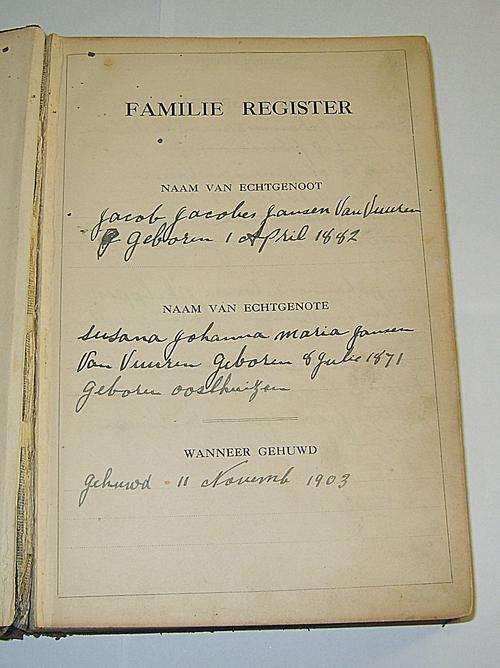 FAMILIE REGISTER
NAAM VAN ECHTGENOOT
Jacob Jacobes Jansen Van Vuuren
geboren 1 April 1882
NAAM VAN ECHTGENOTE
Susana Johanna Maria Jansen
Van Vuuren geboren 8 Julie 1871
geboren oosthuizen
WANNEER GEHUWD
gehuwd 11 Novemb 1903